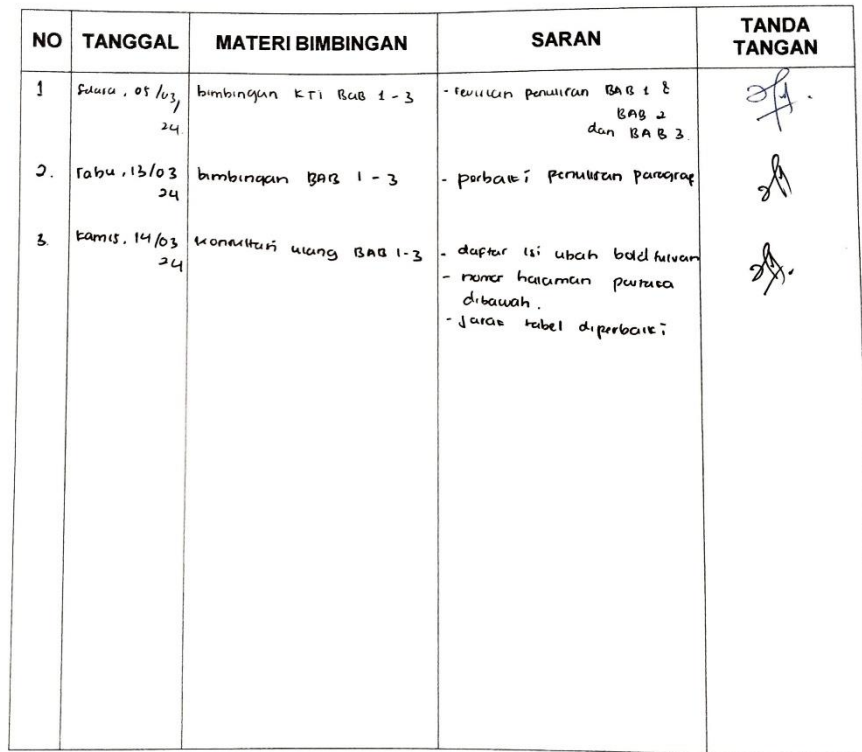 NO TANGGAL MATERI BIMBINGAN SARAN TANDA TANGAN
1 Selasa, 05/03/ bimbingan KTI BAB 1-3 - revisian penulisan BAB 1 &
24. BAB 2
dan BAB 3.
2. Rabu, 13/03 bimbingan BAB 1-3 - perbaiki penulisan paragraf
24
3. Kamis, 14/03 konsultasi ulang BAB 1-3 - daftar isi ubah bold
24 - nomor halaman
dibawah.
- Jarak tabel diperbaiki